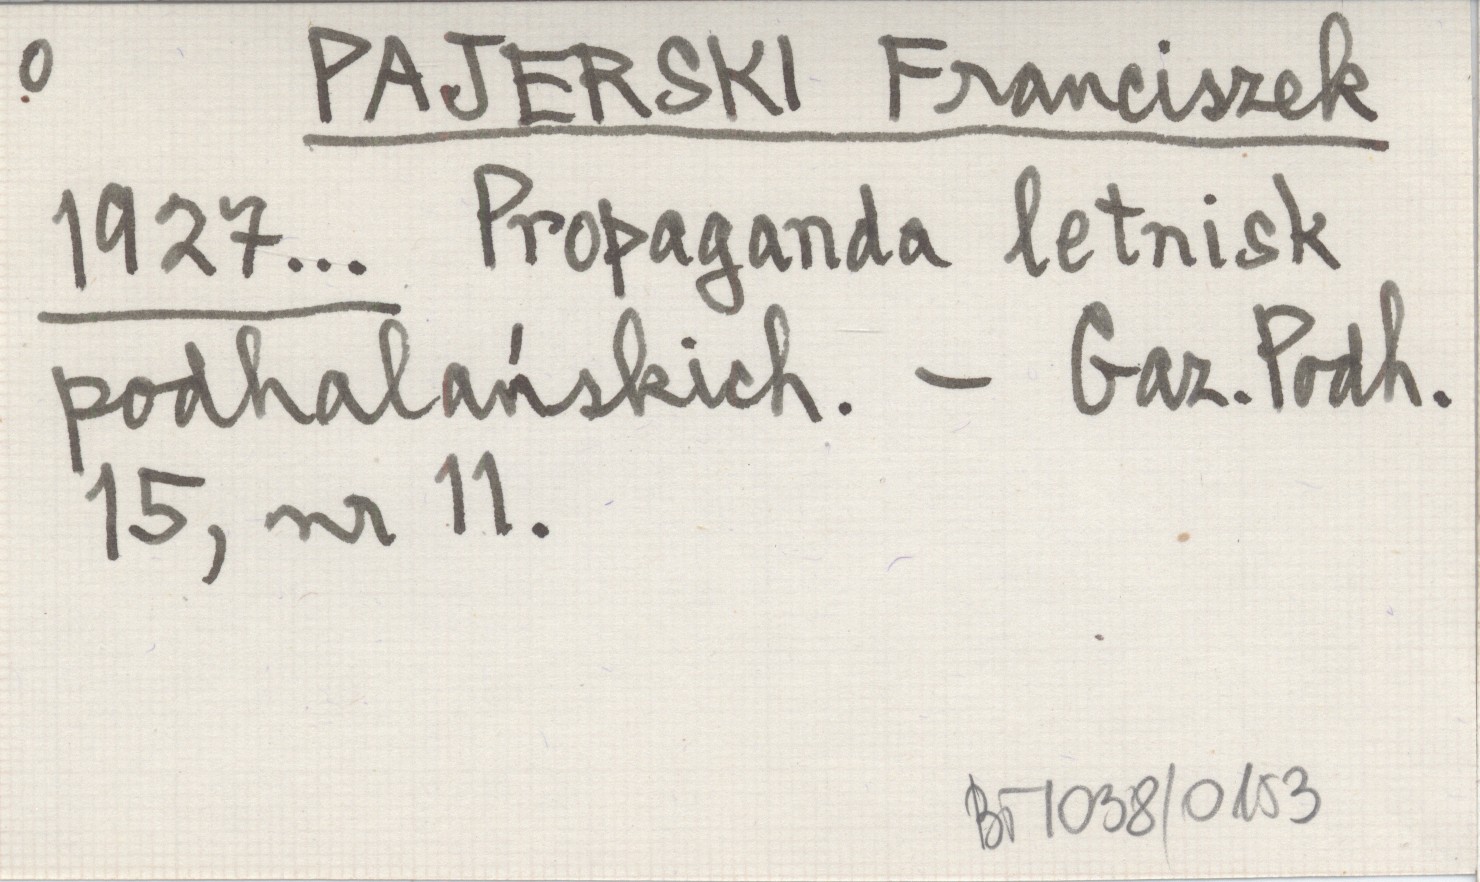 o PAJERSKI Franciszek
1927... Propaganda letnisk
podhalańskich. – Gaz. Podh.
15, nr 11.
1038/0153